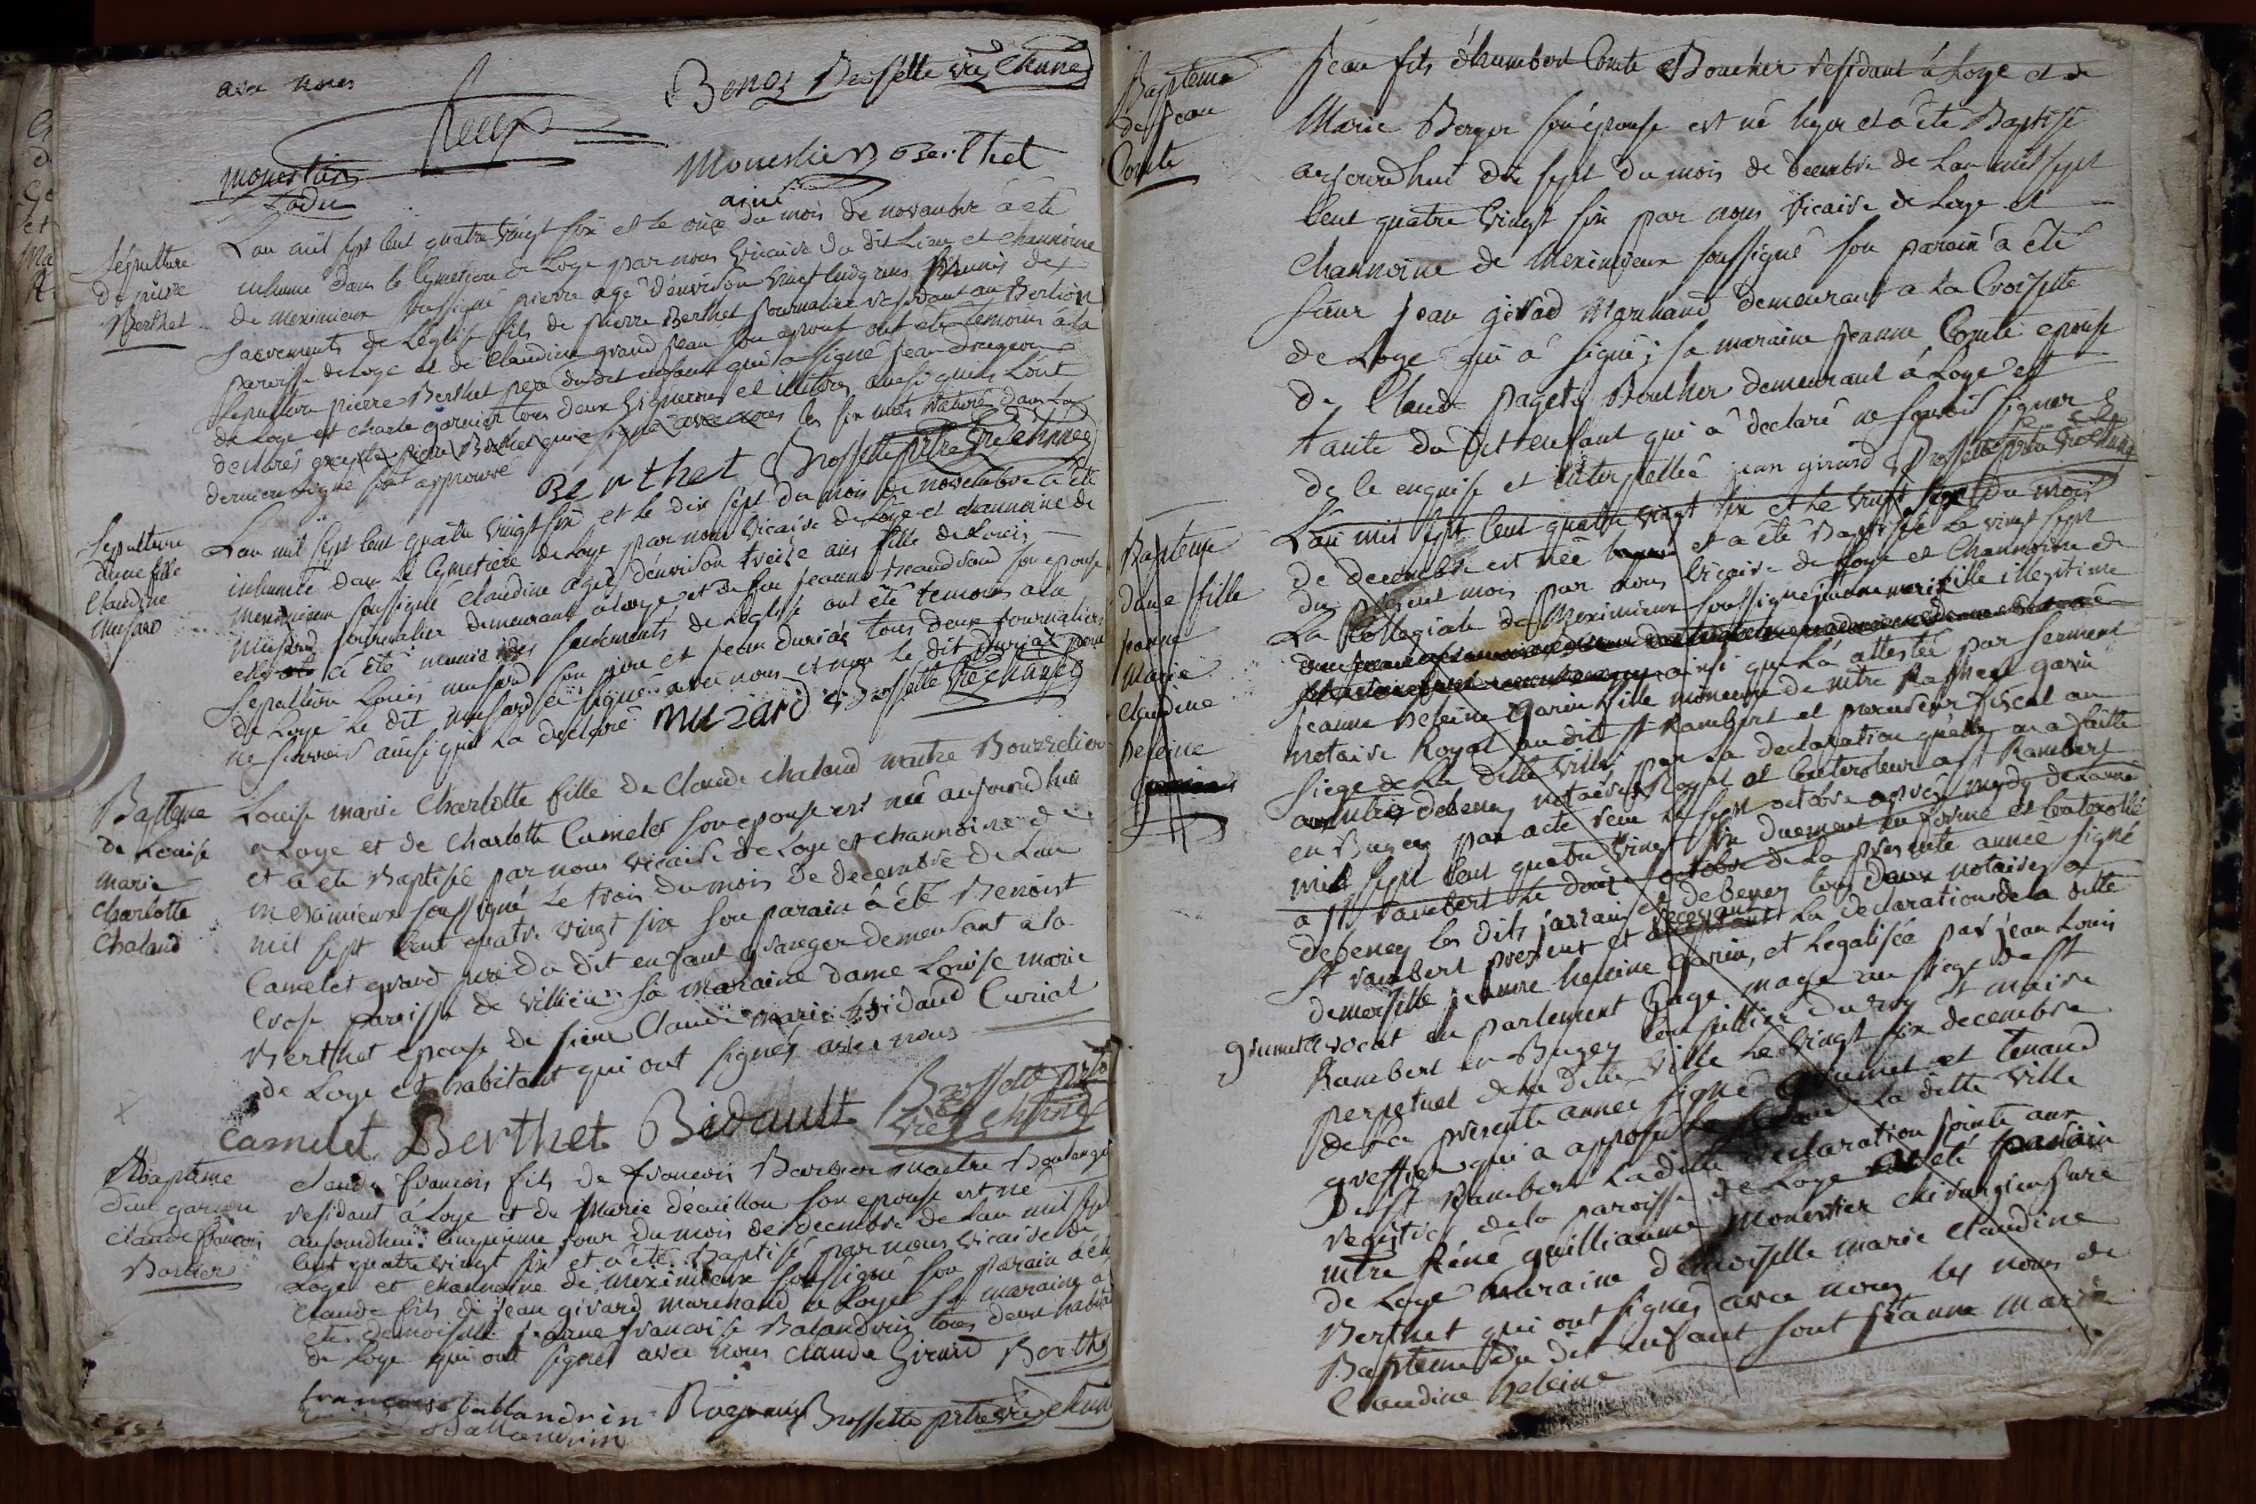 avec nous
Benoz Brossette vic chan
Monestier Berthet
monestier
ainé
Sépulture
de pierre
Berthet
L'an mil sept cent quatre vingt six et le onze du mois de novembre à été
inhumé dans le Cymetiere de Loye par nous vicaire du dit Lieu et channoine
de meximieux soussigné pierre agé d'environ vingt cinq ans munis des
sacrements de l'eglise fils de pierre Berthet journalier residant au
paroisse de Loye et de Claudine grand jean son epouse ont eté temoins à la
sepulture pierre Berthet pere du dit enfant qui a signé jean drugeon
de Loye et charle garnier tous deux vignerons et illitérés ainsi qu'ils l'ont
declarés excepté pierre Berthet qui a signé avec nous les six mots raturés dans la
derniere ligne soit approuvé
Berthet Brossette ptre vic channe
Sepulture
d'une fille
Claudine
musard
L'an mil sept cent quatre vingt six et le dix sept du mois de novembre a été
inhumée dans le Cymetiere de Loye par nous vicaire de Loye et channoine de
meximieux soussigné Claudine agée d'environ treize ans fille de Louis
musard journalier demeurant a Loye et de feu jeanne son epouse
elle a été munie des sacrements de l'eglise ont été temoins a la
sepulture Louis musard son pere et jean duriat tous deux journaliers
de Loye le dit musard a signé avec nous et non le dit duriat pour
ne scavoir ainsi qu'il l'a declaré muzard Brossette vic channe
Bapteme
de Louise
marie
Charlotte
Chaland
Louise marie Charlotte fille de Claude chaland maitre Bourrelier
a Loye et de Charlotte Camelet son epouse est née aujourdhui
et a été Baptisée par nous vicaire de Loye et channoine de
meximieux soussigné le trois du mois de decembre de L'an
mil sept cent quatre vingt six son parain à été Benoist
Camelet grand pere du dit enfant granger demeurant a la
Crose paroisse de villieu sa maraine dame Louise marie
Berthet epouse de sieur Claude marie Bidaud Curial
de Loye et habitant qui ont signés avec nous
camelet Berthet Bidault Brossette ptre
vic channe
Bapteme
d'un garcon
claude francois
Barbier
claude francois fils de francois Barbier maitre Boulanger
residant à Loye et de Marie décuillon son epouse est né
aujourdhui cinquieme jour du mois de decembre de L'an mil sept
cent quatre vingt six et a été Baptisé par nous vicaire de
Loye et channoine de meximieux soussigné son parain à été
claude fils de jean girard marchand a Loye sa maraine a
eté demoiselle jeanne francoise Balandrin tous deux habitants
de Loye qui ont signés avec nous claude Girard Berthet
francoise ballandrin Brossette ptre vic chan
Ballandrin
Bapteme
de jean
Comte
Jean fils d'humbert Comte Boucher residant à Loye et de
Marie Berger son epouse est né hyer et a été Baptisé
aujourdhui dix sept du mois de decembre de L'an mil sept
Cent quatre vingt six par nous vicaire de Loye et
Channoine de meximieux soussigné son parain a été
sieur jean girard Marchand demeurant a la Croisette
de Loye qui a signé; sa maraine jeanne Comte epouse
de Claude Paget Boucher demeurant à Loye et
tante du dit enfant qui a déclaré ne scavoir signer
de ce enquise et interpellée jean girard Brossette ptre vic channe
Bapteme
d'une fille
jeanne
Marie
Claudine
heleine
L'an mil sept cent quatre vingt six et le vingt sept du mois
de decembre est née et a été Baptisée le vingt sept
du present mois par nous vicaire de Loye et Channoine de
La Collegiale de Meximieux soussigné jeanne marie fille illegitime
ainsi qu'l'a attestée par serment
jeanne heleine Garin fille mineure de mtre Raphael garin
notaire Royal au dit st Rambert et procureur fiscal au
siege de La ditte ville par La declaration qu'elle en a faitte
a mtre debeney notaire Royal et Controleur a st Rambert
en Bugey par acte recu le sept octobre apres mydy de l'année
mil sept cent quatre vingt six duement en forme et Controllé
a st Rambert le douze octobre de La presente année signé
debeney les dits jarrain et debeney tous deux notaires a
st rambert present et recevant La declaration de la ditte
demoiselle jeanne heleine Garin, et Legalisée par jean Louis
grumet avocat en parlement Juge mage au siege de st
Rambert en Bugey Conseillier du roy et maire
perpetuel de La ditte ville le vingt six decembre
de La presente année signé grumet et Tenand
greffier qui a apposé le sceau de La ditte ville
de st Rambert La ditte declaration jointe aux
registres de la paroisse de Loye a été parain
mtre Réné guillianme Monestier chirurgien juré
de Loye maraine demoiselle marie Claudine
Berthet qui ont signés avec nous les noms de
Bapteme du dit enfant sont jeanne marie
Claudine heleine